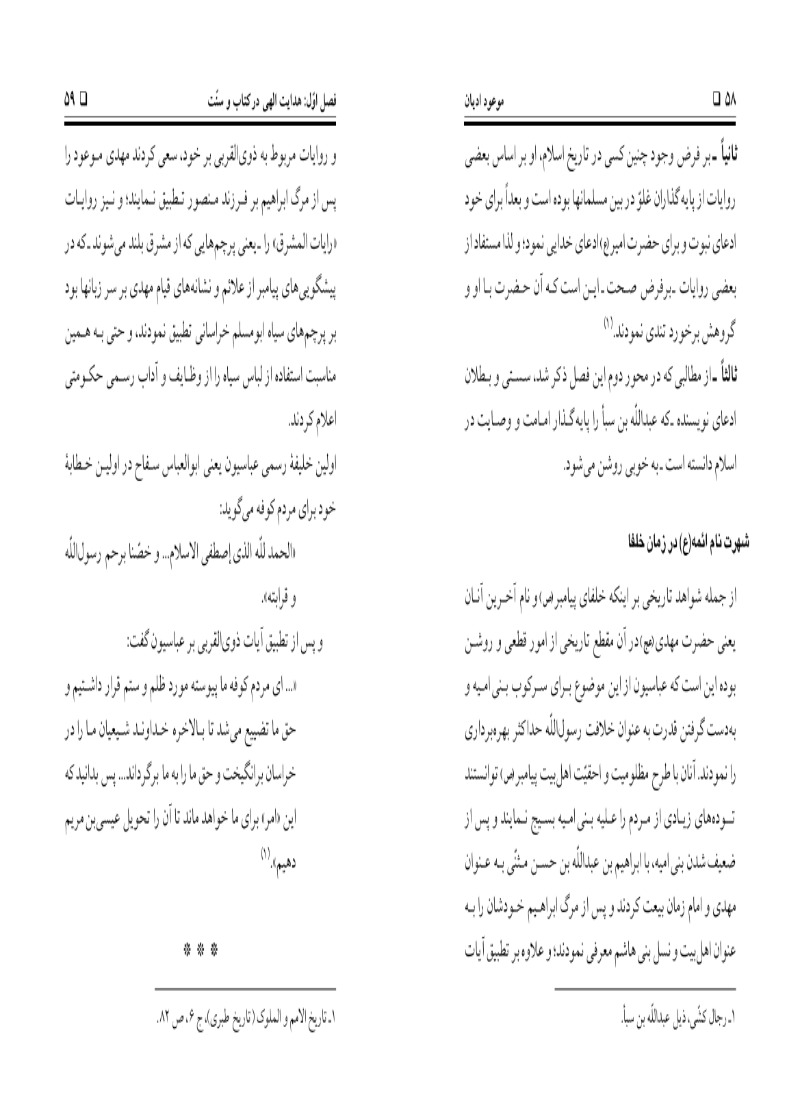 ۵۸ ❑ موعود ادیان
ثانیاً ـ بر فرض وجود چنین کسی در تاریخ اسلام، او بر اساس بعضی
روایات از پایه‌گذاران غلوّ در بین مسلمانها بوده است و بعداً برای خود
ادعای نبوت و برای حضرت امیر(ع) ادعای خدایی نمود؛ و لذا مستفاد از
بعضی روایات ـ برفرض صحت ـ این است که آن حضرت با او و
گروهش برخورد تندی نمودند.(۱)
ثالثاً ـ از مطالبی که در محور دوم این فصل ذکر شد، سستی و بطلان
ادعای نویسنده ـ که عبداللّه بن سبأ را پایه‌گذار امامت و وصایت در
اسلام دانسته است ـ به خوبی روشن می‌شود.
شهرت نام ائمه(ع) در زمان خلفا
از جمله شواهد تاریخی بر اینکه خلفای پیامبر(ص) و نام آخرین آنان
یعنی حضرت مهدی(عج) در آن مقطع تاریخی از امور قطعی و روشن
بوده این است که عباسیون از این موضوع برای سرکوب بنی‌امیه و
به‌دست گرفتن قدرت به عنوان خلافت رسول‌اللّه حداکثر بهره‌برداری
را نمودند. آنان با طرح مظلومیت و احقیّت اهل‌بیت پیامبر(ص) توانستند
توده‌های زیادی از مردم را علیه بنی‌امیه بسیج نمایند و پس از
ضعیف شدن بنی امیه، با ابراهیم بن عبداللّه بن حسن مثنّی به عنوان
مهدی و امام زمان بیعت کردند و پس از مرگ ابراهیم خودشان را به
عنوان اهل‌بیت و نسل بنی هاشم معرفی نمودند؛ و علاوه بر تطبیق آیات
۱ـ رجال کشّی، ذیل عبداللّه بن سبأ.
فصل اوّل: هدایت الهی در کتاب و سنّت ❑ ۵۹
و روایات مربوط به ذوی‌القربی بر خود، سعی کردند مهدی موعود را
پس از مرگ ابراهیم بر فرزند منصور تطبیق نمایند؛ و نیز روایات
«رایات المشرق» را ـ یعنی پرچم‌هایی که از مشرق بلند می‌شوند ـ که در
پیشگویی‌های پیامبر از علائم و نشانه‌های قیام مهدی بر سر زبانها بود
بر پرچم‌های سیاه ابومسلم خراسانی تطبیق نمودند، و حتی به همین
مناسبت استفاده از لباس سیاه را از وظایف و آداب رسمی حکومتی
اعلام کردند.
اولین خلیفهٔ رسمی عباسیون یعنی ابوالعباس سفاح در اولین خطابهٔ
خود برای مردم کوفه می‌گوید:
«الحمد للّه الذی إصطفی الاسلام... و خصّنا برحم رسول‌اللّه
و قرابته».
و پس از تطبیق آیات ذوی‌القربی بر عباسیون گفت:
«... ای مردم کوفه ما پیوسته مورد ظلم و ستم قرار داشتیم و
حق ما تضییع می‌شد تا بالاخره خداوند شیعیان ما را در
خراسان برانگیخت و حق ما را به ما برگرداند... پس بدانید که
این «امر» برای ما خواهد ماند تا آن را تحویل عیسی‌بن مریم
دهیم».(۱)
* * *
۱ـ تاریخ الامم و الملوک (تاریخ طبری)، ج ۶، ص ۸۲.